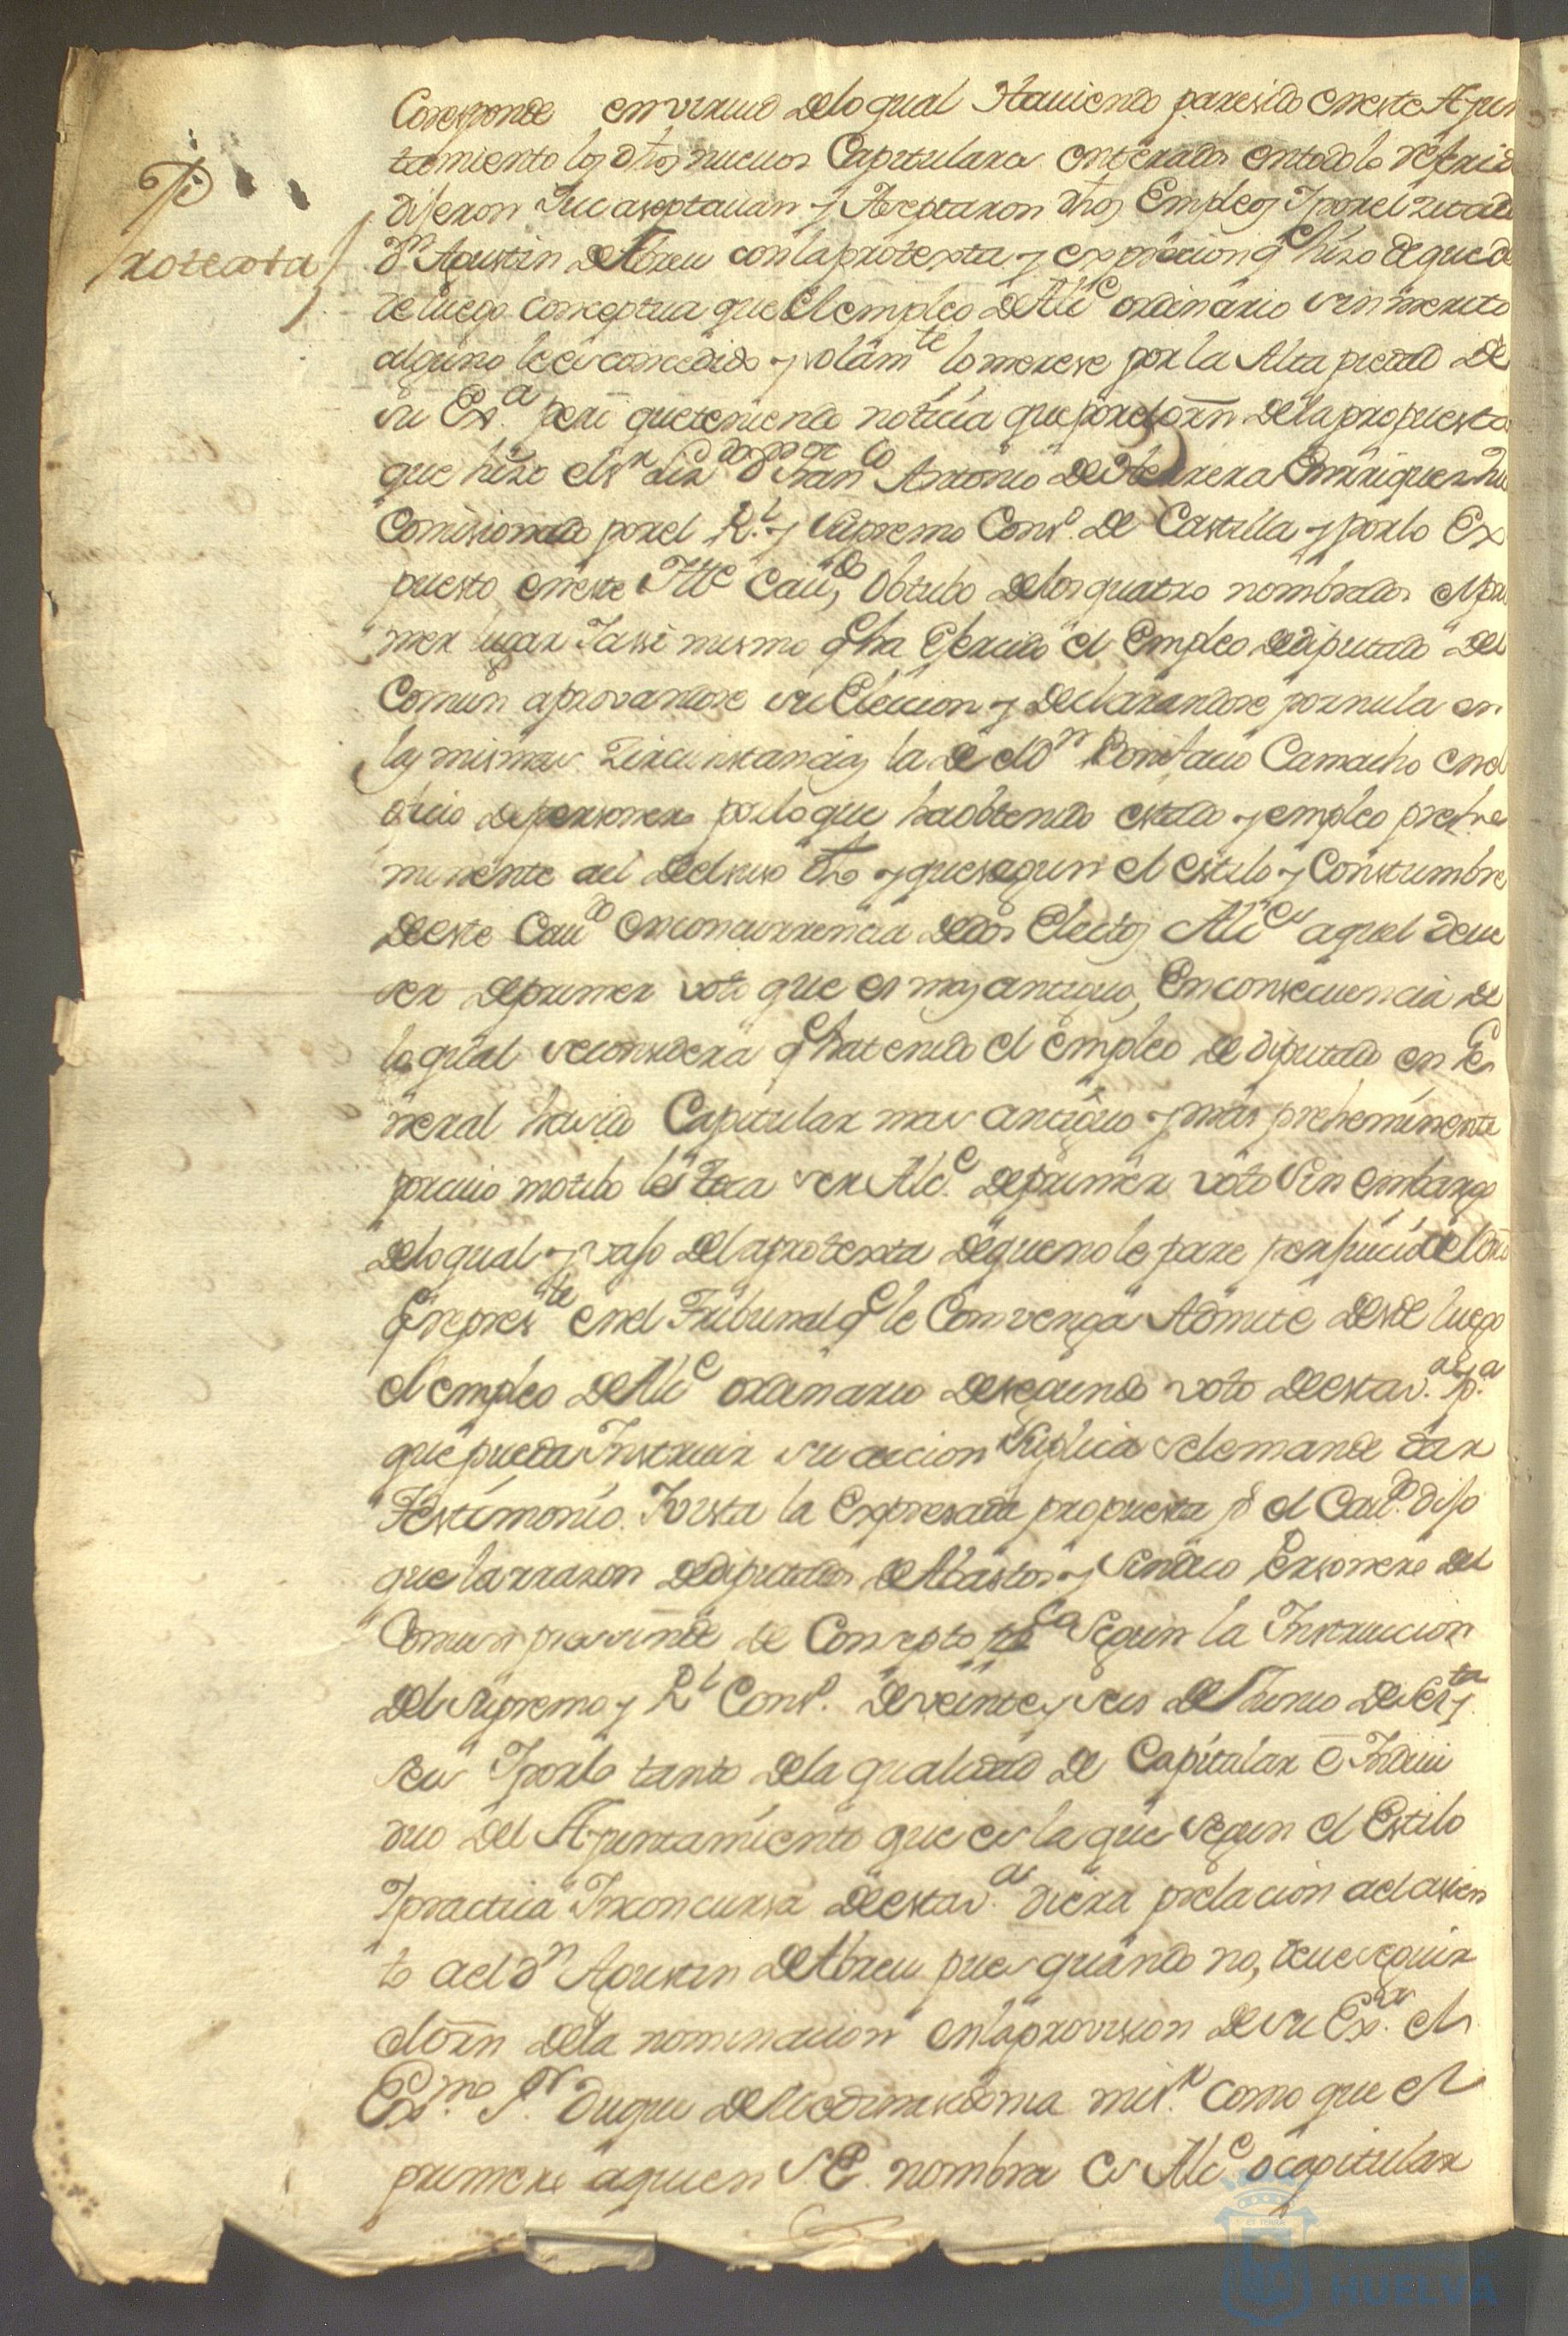 Protexta
Coresponde en virtud delo qual Hauiendo paresido en este Ayun
tamiento los dhos nueuos Capitulares enterados en todo lo referid
dijeron Que aseptauan y Aseptaron dhos Empleos Y por el zitado
Dn Agustin de Abreu con la protexta y expresion qe hizo de que de
de luego conceptua que el empleo de Alce ordinario sin merito
alguno le es concedido y solamte lo merese por la Alta piedad de
su Exa pero que teniendo noticia que por el orn dela propuesta
que hizo el sr Lizdo Dn Franco Antonio de Herrera Enrriquez Jue
Comisionado por el Rl y Supremo Conso. de Castilla y por lo Ex
puesto en este Iltte Cauдo, Obtubo delos quatro nombrados el pri
mer lugar Y assi mismo qe ha Ejercido el Empleo de diputado del
Comun aprovandose su Eleccion y declarandose por nula en
las mismas Zircunstancias la de el Dn Bonifacio Camacho en el
oficio de personero por lo que ha obtenido estado y empleo prehe
minente al del suso dho y que segun el estilo y Constumbre
de este Caudo en concurrencia de dos Electos Alces aquel deue
ser de primer voto que es mas antiguo, En consecuencia de
lo qual se considera qe ha tenido el empleo de diputado en Ge
neral ha sido Capitular mas antiguo y mas preheminente
por cuio motibo le toca ser Alce. de primer voto Sin embargo
delo qual y vajo dela protexta de que no le pare perjuicio el dro
qe represte en el Tribunal qe le Convenga Admite desde luego
el empleo de Alce ordinario de segundo voto de esta va. Ypa
que pueda Instruir su accion Suplica se le mande dar
Testimonio. Y vista la Expresada propuesta pr el Caudo. dijo
que la rrazon de diputados de Abastos y Sindico Personero del
Comun prescinde de Consepto Segun la Instruccion
del Supremo y Rl Conso. de veinte y seis de Junio de
seis Y por lo tanto dela qualidad de Capitular e Indiui
duo del Ayuntamiento que es la que segun el Estilo
Y practica Inconcursa de esta va. diera prelacion al asien
to al dn Agustin de Abreu pues quando no, deue seguir
el orn dela nominacion en la provision de su Exa. el
Exmo. Sr. Duque de Medinasidonia mi sr. como que el
primero a quien S.E. nombra es Alce o capitular
HUELVA